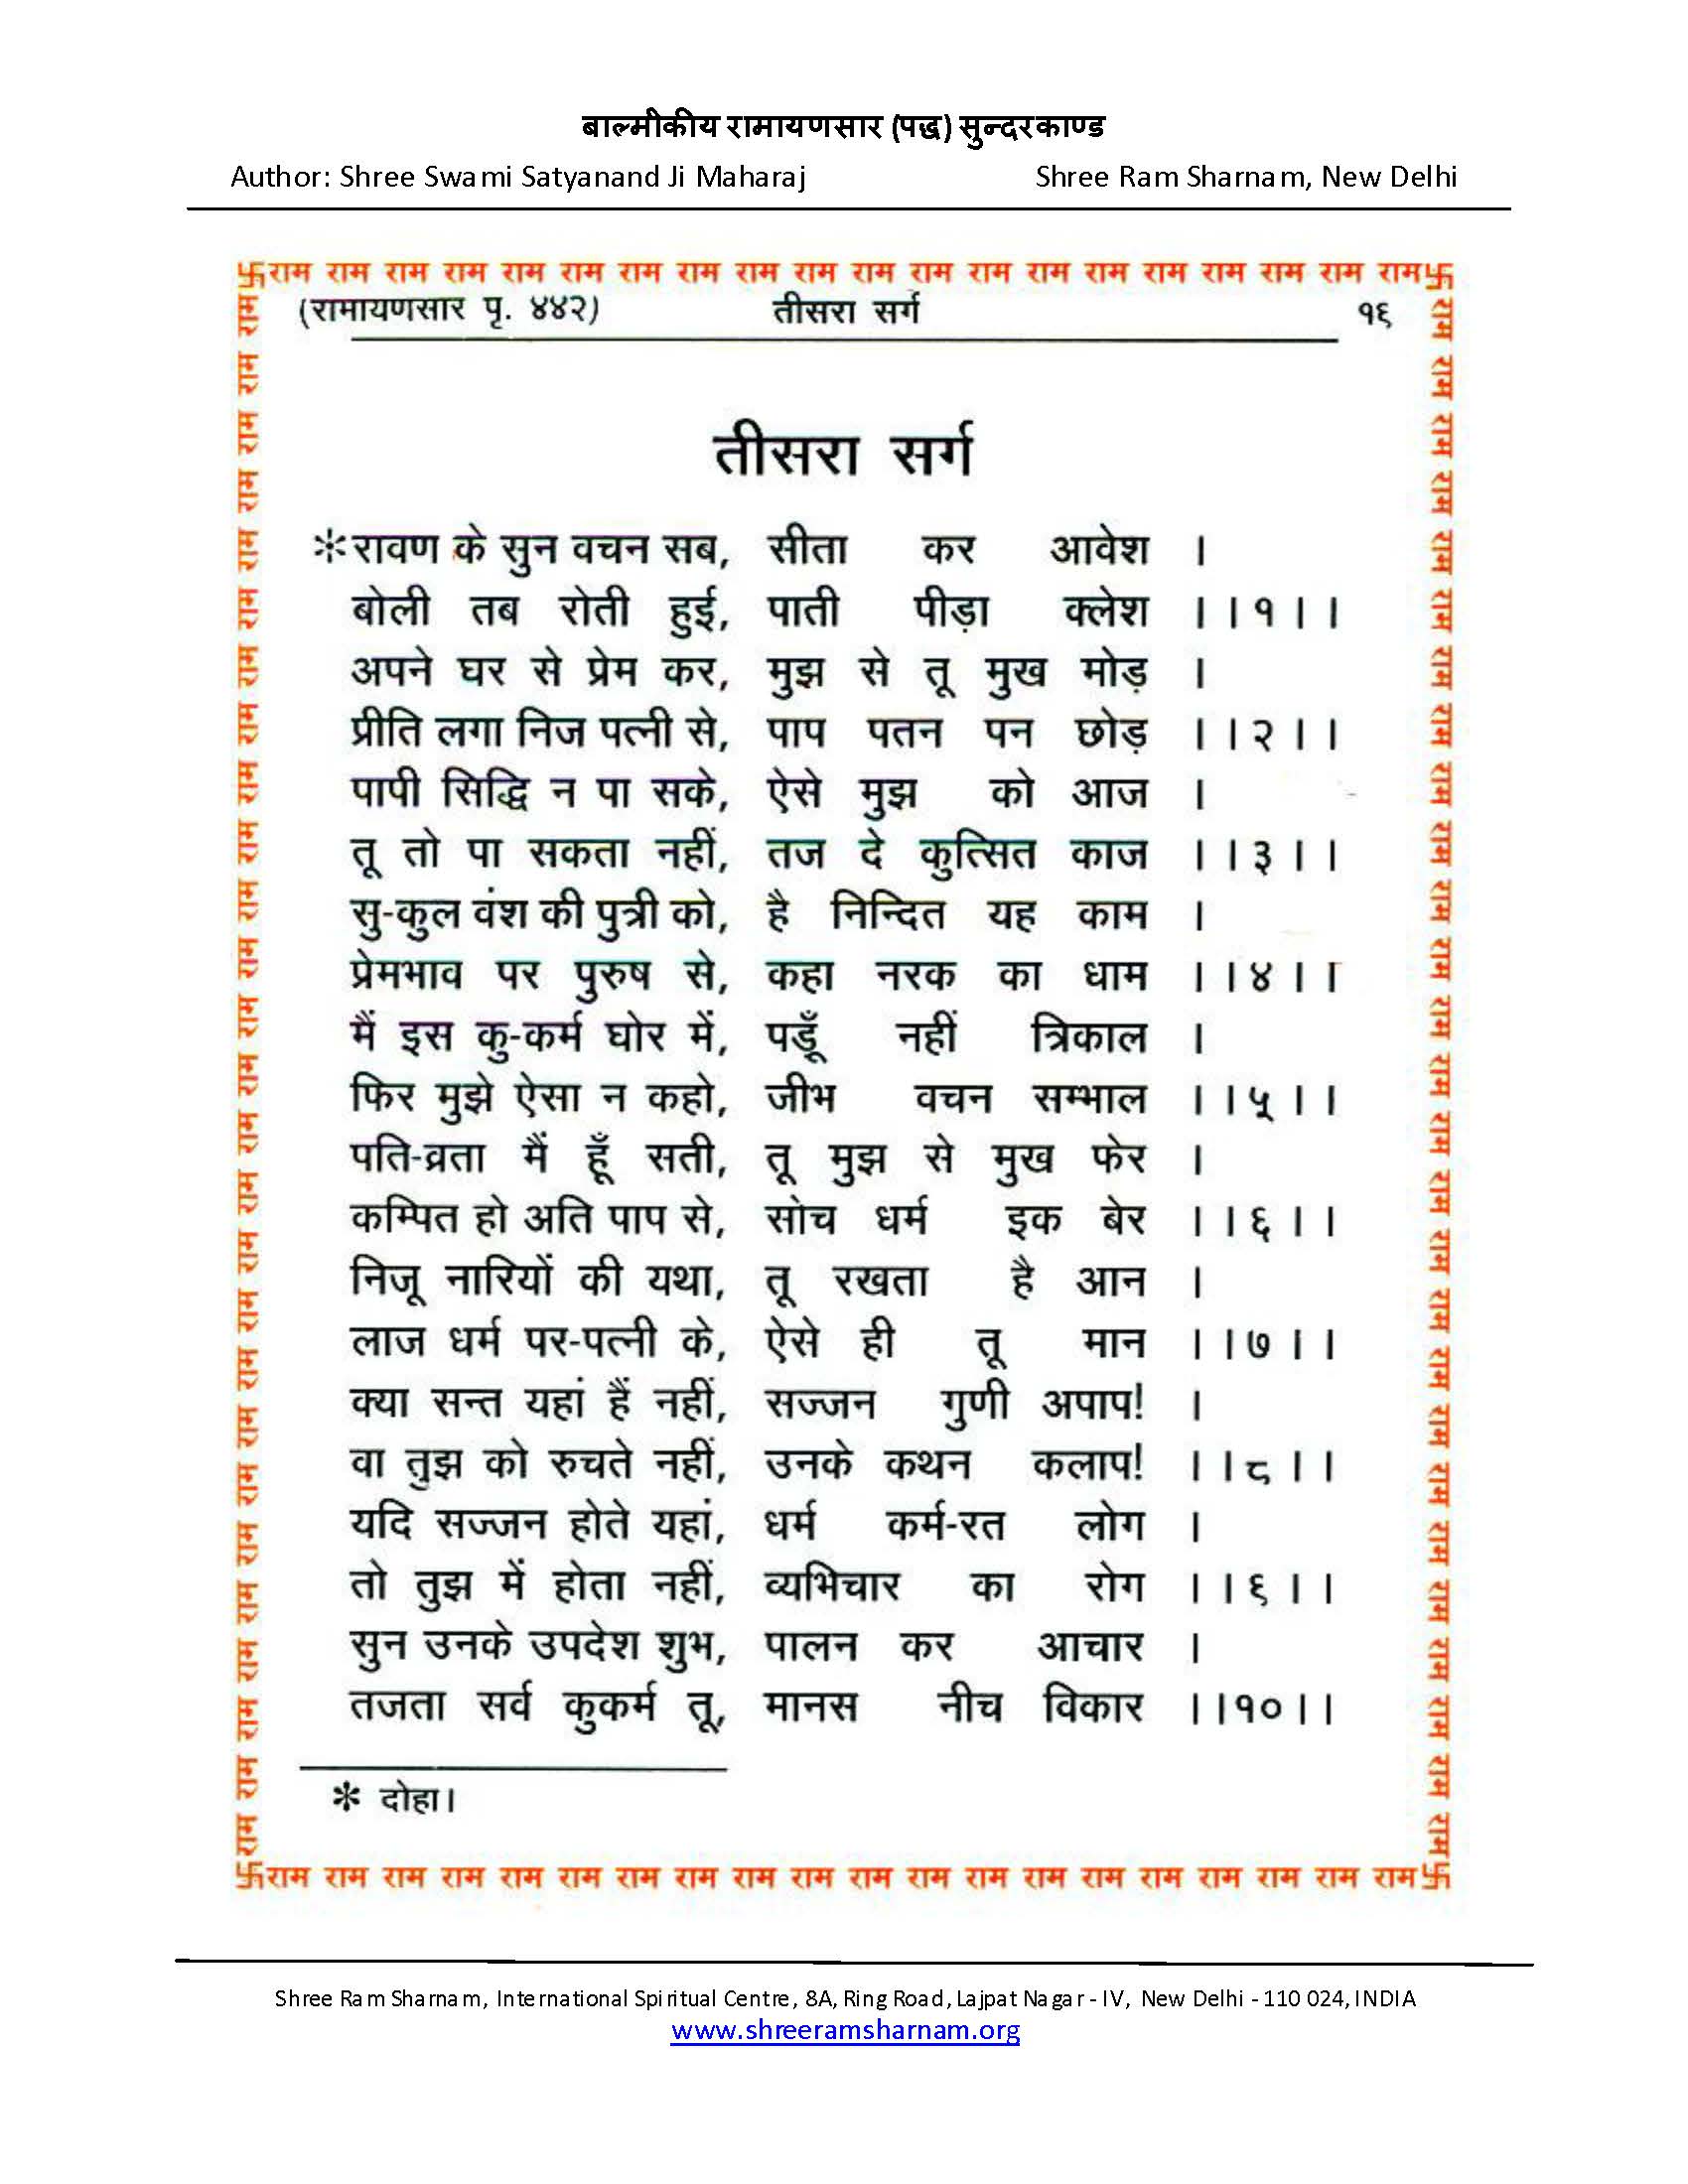 बाल्मीकीय रामायणसार (पद्ध) सुन्दरकाण्ड
Author: Shree Swami Satyanand Ji Maharaj Shree Ram Sharnam, New Delhi
卐राम राम राम राम राम राम राम राम राम राम राम राम राम राम राम राम राम राम राम राम卐
(रामायणसार पृ. ४४२) तीसरा सर्ग १६
तीसरा सर्ग
*रावण के सुन वचन सब, सीता कर आवेश ।
बोली तब रोती हुई, पाती पीड़ा क्लेश ।।१।।
अपने घर से प्रेम कर, मुझ से तू मुख मोड़ ।
प्रीति लगा निज पत्नी से, पाप पतन पन छोड़ ।।२।।
पापी सिद्धि न पा सके, ऐसे मुझ को आज ।
तू तो पा सकता नहीं, तज दे कुत्सित काज ।।३।।
सु-कुल वंश की पुत्री को, है निन्दित यह काम ।
प्रेमभाव पर पुरुष से, कहा नरक का धाम ।।४।।
मैं इस कु-कर्म घोर में, पडूँ नहीं त्रिकाल ।
फिर मुझे ऐसा न कहो, जीभ वचन सम्भाल ।।५।।
पति-व्रता मैं हूँ सती, तू मुझ से मुख फेर ।
कम्पित हो अति पाप से, सोच धर्म इक बेर ।।६।।
निजू नारियों की यथा, तू रखता है आन ।
लाज धर्म पर-पत्नी के, ऐसे ही तू मान ।।७।।
क्या सन्त यहां हैं नहीं, सज्जन गुणी अपाप! ।
वा तुझ को रुचते नहीं, उनके कथन कलाप! ।।८।।
यदि सज्जन होते यहां, धर्म कर्म-रत लोग ।
तो तुझ में होता नहीं, व्यभिचार का रोग ।।९।।
सुन उनके उपदेश शुभ, पालन कर आचार ।
तजता सर्व कुकर्म तू, मानस नीच विकार ।।१०।।
* दोहा।
卐राम राम राम राम राम राम राम राम राम राम राम राम राम राम राम राम राम राम राम राम卐
Shree Ram Sharnam, International Spiritual Centre, 8A, Ring Road, Lajpat Nagar - IV, New Delhi - 110 024, INDIA
www.shreeramsharnam.org